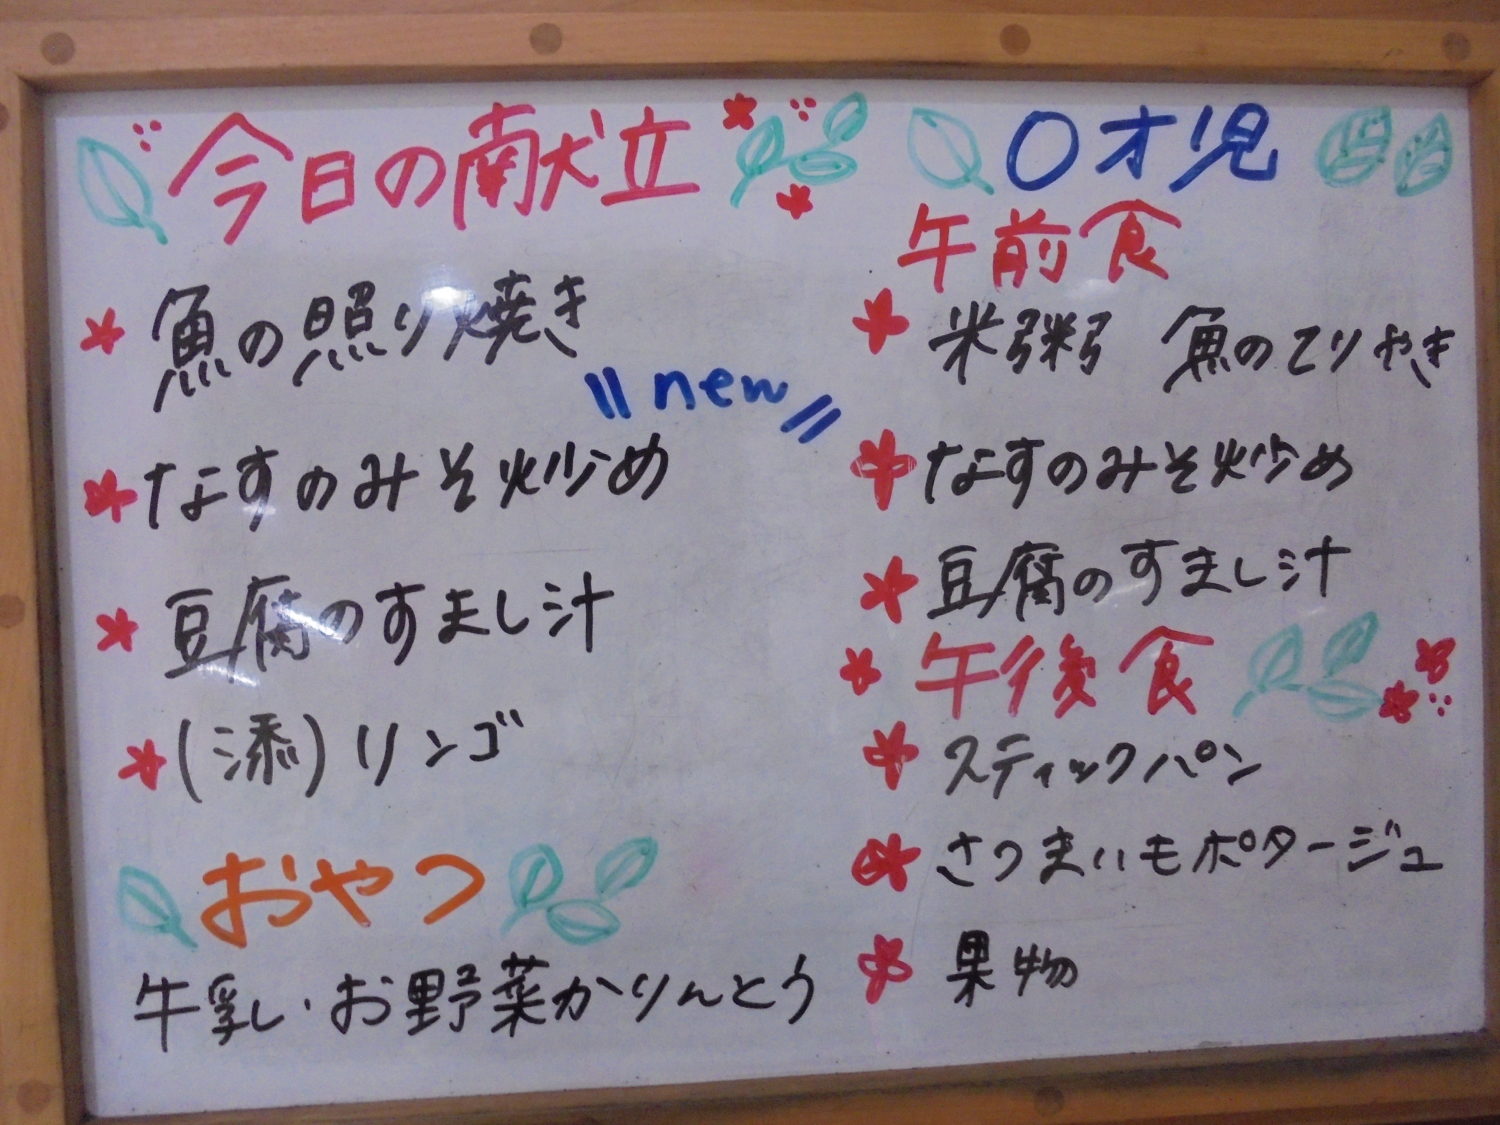 今日の献立
魚の照り焼き
new
なすのみそ炒め
豆腐のすまし汁
(添)リンゴ
おやつ
牛乳・お野菜かりんとう
〇才児
午前食
米粥 魚のてりやき
なすのみそ炒め
豆腐のすまし汁
午後食
スティックパン
さつまいもポタージュ
果物